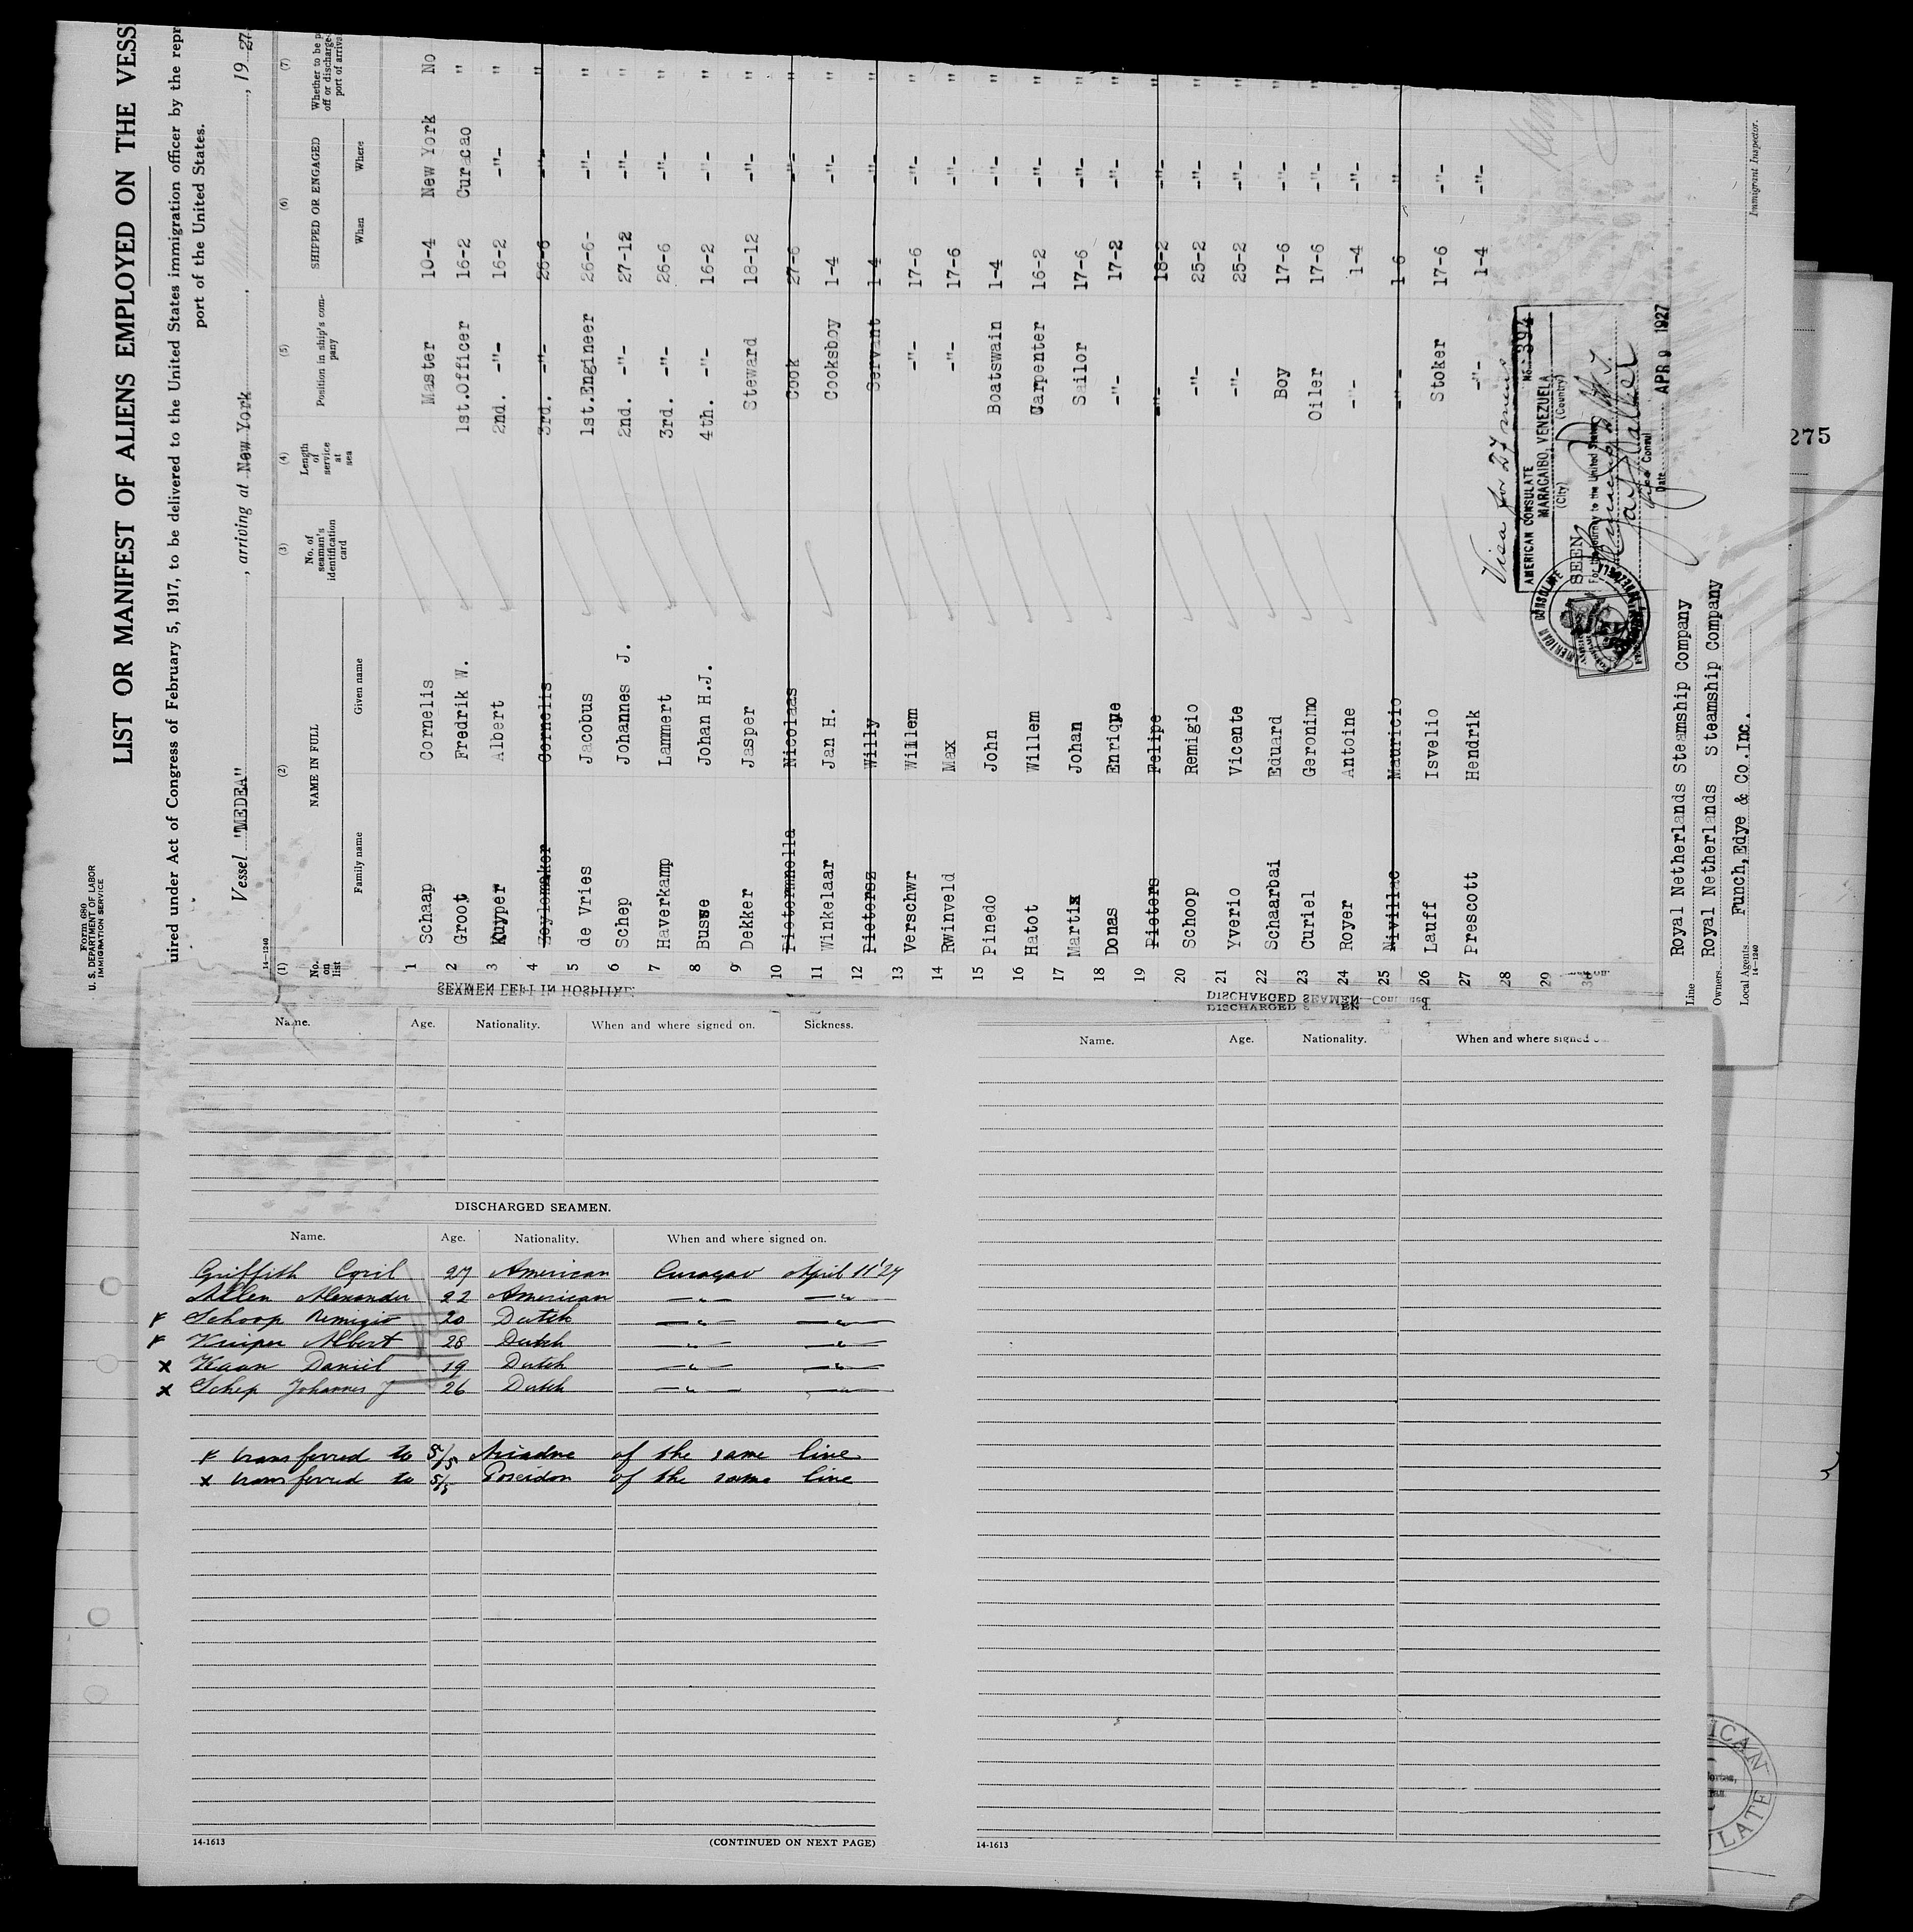 Form 680
U. S. DEPARTMENT OF LABOR
IMMIGRATION SERVICE
LIST OR MANIFEST OF ALIENS EMPLOYED ON THE VESS
uired under Act of Congress of February 5, 1917, to be delivered to the United States immigration officer by the repr
port of the United States.
Vessel "MEDEA" , arriving at New York , , 19 27
14—1240
(1) (2) (3) (4) (5) (6) (7)
No. on list NAME IN FULL No. of seaman's identification card Length of service at sea Position in ship's company SHIPPED OR ENGAGED Whether to be p off or discharge port of arriva
Family name Given name When Where
1 Schaap Cornelis Master 10-4 New York No
2 Groot Fredrik W. 1st.Officer 16-2 Curacao "
3 Kuyper Albert 2nd. -"- 16-2 -"- "
4 Zeylemaker Cornelis 3rd. -"- 26-6 -"- "
5 de Vries Jacobus 1st.Engineer 26-6- -"- "
6 Schep Johannes J. 2nd. -"- 27-12 -"- "
7 Haverkamp Lammert 3rd. -"- 26-6 -"- "
8 Busse Johan H.J. 4th. -"- 16-2 -"- "
9 Dekker Jasper Steward 18-12 -"- "
10 Pietermnella Nicolaas Cook 27-6 -"- "
11 Winkelaar Jan H. Cooksboy 1-4 -"- "
12 Pietersz Willy Servant 1-4 -"- "
13 Verschwr Willem -"- 17-6 -"- "
14 Rwinveld Max -"- 17-6 -"- "
15 Pinedo John Boatswain 1-4 -"- "
16 Hatot Willem Carpenter 16-2 -"- "
17 Martix Johan Sailor 17-6 -"- "
18 Donas Enrique -"- 17-2 -"- "
19 Pieters Felipe -"- 18-2 -"- "
20 Schoop Remigio -"- 25-2 -"- "
21 Yverio Vicente -"- 25-2 -"- "
22 Schaarbai Eduard Boy 17-6 -"- "
23 Curiel Geronimo Oiler 17-6 -"- "
24 Royer Antoine -"- 1-4 -"- "
25 Nivillac Mauricio -"- 1-6 " "
26 Lauff Isvelio Stoker 17-6 -"-
27 Prescott Hendrik -"- 1-4 -"-
28
29
30
Visa for 27 mens
AMERICAN CONSULATE No. 394
MARACAIBO, VENEZUELA
(City) (Country)
SEEN
For the journey to the United States
Vice Consul
Date APR 9 1927
Line Royal Netherlands Steamship Company
Owners Royal Netherlands Steamship Company
Local Agents Funch, Edye & Co. Inc.
14—1240
Immigrant Inspector.
275
SEAMEN LEFT IN HOSPITAL
Name. Age. Nationality. When and where signed on. Sickness.
DISCHARGED SEAMEN.
Name. Age. Nationality. When and where signed on.
Griffith Cyril 27 American Curaçao April 11'27
Allen Alexander 22 American —"— —"—
x Schoop Remigio 20 Dutch —"— —"—
x Kuiper Albert 28 Dutch —"— —"—
x Kaan Daniel 19 Dutch —"— —"—
x Schep Johannes J 26 Dutch —"— —"—
x transferred to S/S Ariadne of the same line
x transferred to S/S Poseidon of the same line
14-1613 (CONTINUED ON NEXT PAGE)
DISCHARGED SEAMEN
Name. Age. Nationality. When and where signed
14-1613